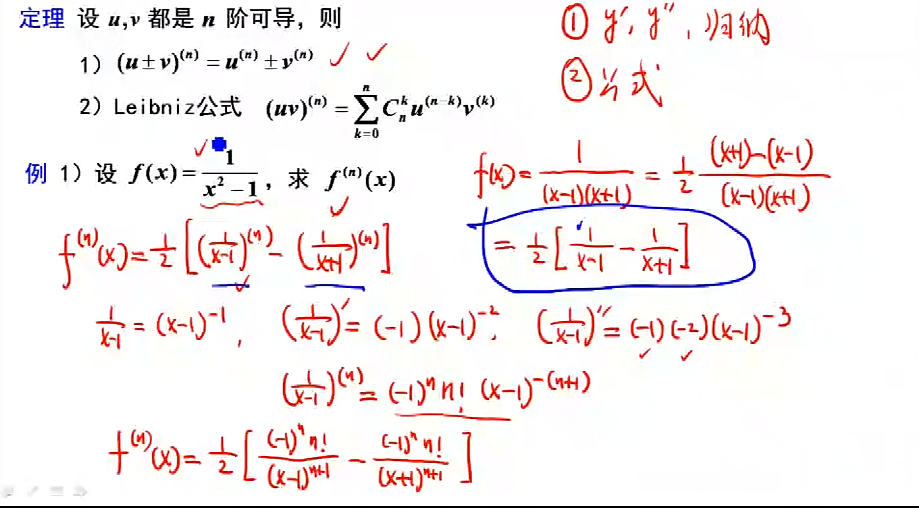 定理 设 u,v 都是 n 阶可导，则
1) (u±v)^(n) = u^(n) ± v^(n) ✓ ✓
2) Leibniz公式 (uv)^(n) = ∑_{k=0}^{n} C_n^k u^(n-k) v^(k)
① y′, y″, 归纳
② 公式
例 1) 设 f(x) = 1/(x²-1), 求 f^(n)(x)
f(x) = 1/((x-1)(x+1)) = 1/2 ((x+1)-(x-1))/((x-1)(x+1))
= 1/2 [1/(x-1) - 1/(x+1)]
f^(n)(x) = 1/2 [(1/(x-1))^(n) - (1/(x+1))^(n)]
1/(x-1) = (x-1)^-1, (1/(x-1))′ = (-1)(x-1)^-2, (1/(x-1))″ = (-1)(-2)(x-1)^-3
(1/(x-1))^(n) = (-1)^n n! (x-1)^-(n+1)
f^(n)(x) = 1/2 [(-1)^n n!/(x-1)^(n+1) - (-1)^n n!/(x+1)^(n+1)]